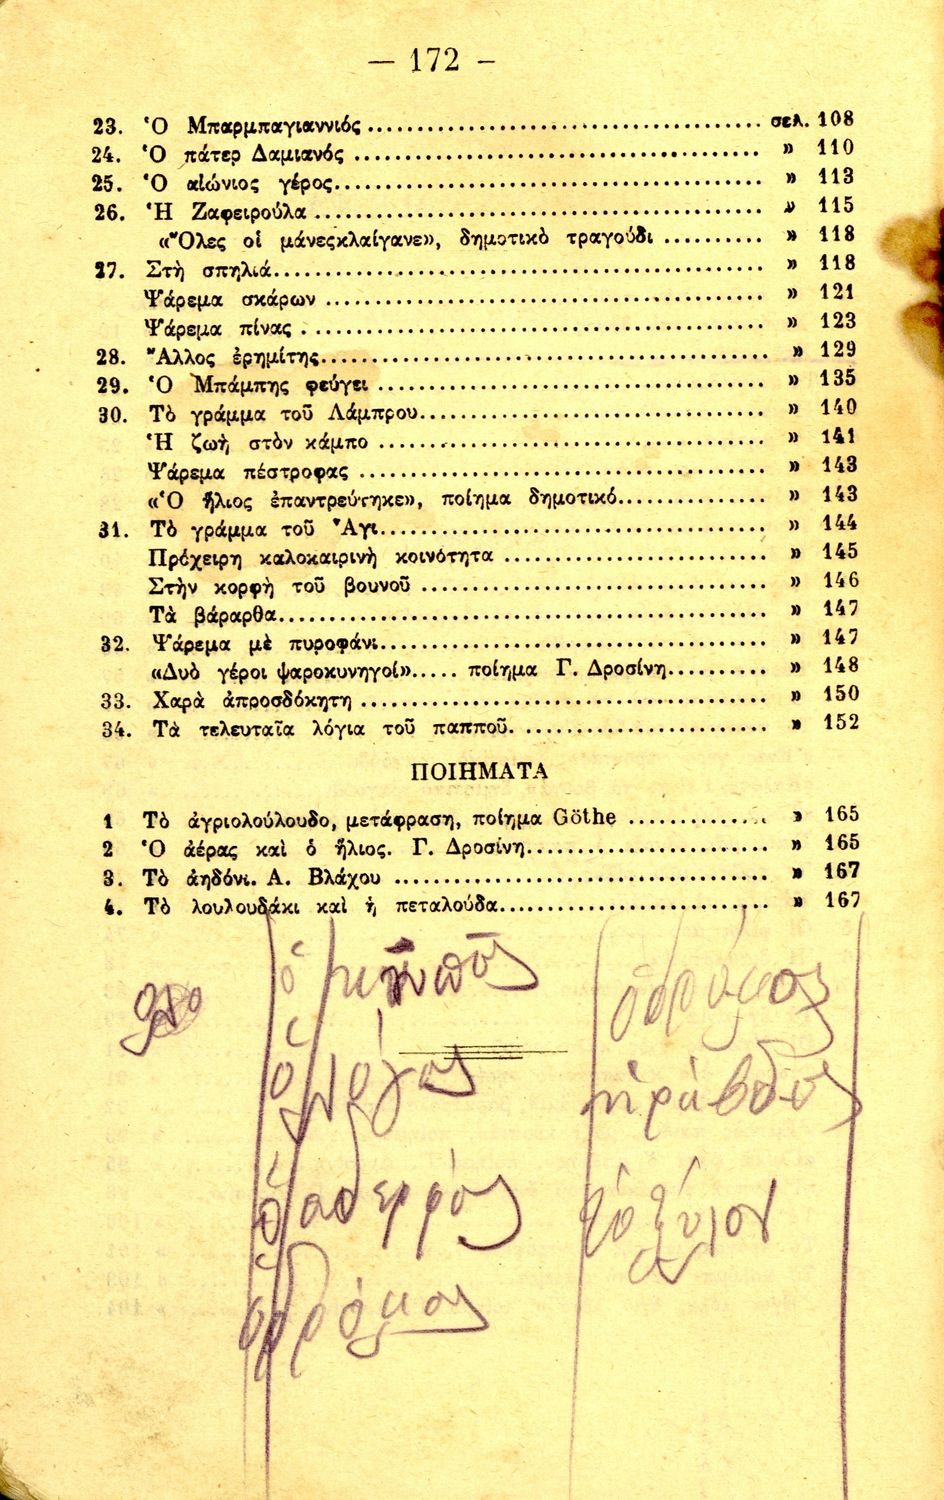 — 172 –
23. Ὁ Μπαρμπαγιαννιός ........................................ σελ. 108
24. Ὁ πάτερ Δαμιανός ........................................ » 110
25. Ὁ αἰώνιος γέρος........................................ » 113
26. Ἡ Ζαφειρούλα ........................................ » 115
«Ὅλες οἱ μάνεςκλαίγανε», δημοτικὸ τραγούδι .......... » 118
27. Στὴ σπηλιά........................................ » 118
Ψάρεμα σκάρων ........................................ » 121
Ψάρεμα πίνας ........................................ » 123
28. Ἄλλος ἐρημίτης........................................ » 129
29. Ὁ Μπάμπης φεύγει ........................................ » 135
30. Τὸ γράμμα τοῦ Λάμπρου........................................ » 140
Ἡ ζωὴ στὸν κάμπο ........................................ » 141
Ψάρεμα πέστροφας ........................................ » 143
«Ὁ ἥλιος ἐπαντρεύτηκε», ποίημα δημοτικό............... » 143
31. Τὸ γράμμα τοῦ Ἄγι........................................ » 144
Πρόχειρη καλοκαιρινὴ κοινότητα .......................... » 145
Στὴν κορφὴ τοῦ βουνοῦ ........................................ » 146
Τὰ βάραρθα........................................ » 147
32. Ψάρεμα μὲ πυροφάνι........................................ » 147
«Δυὸ γέροι ψαροκυνηγοί»..... ποίημα Γ. Δροσίνη.......... » 148
33. Χαρὰ ἀπροσδόκητη ........................................ » 150
34. Τὰ τελευταῖα λόγια τοῦ παπποῦ. ......................... » 152
ΠΟΙΗΜΑΤΑ
1 Τὸ ἀγριολούλουδο, μετάφραση, ποίημα Göthe .............. » 165
2 Ὁ ἀέρας καὶ ὁ ἥλιος. Γ. Δροσίνη......................... » 165
3. Τὸ ἀηδόνι. Α. Βλάχου ........................................ » 167
4. Τὸ λουλουδάκι καὶ ἡ πεταλούδα........................... » 167
ὁ
ὁ λόγος
ὁ ἀδερφός
ὁ δρόμος
ἡ ράβδος
τὸ ξύλον